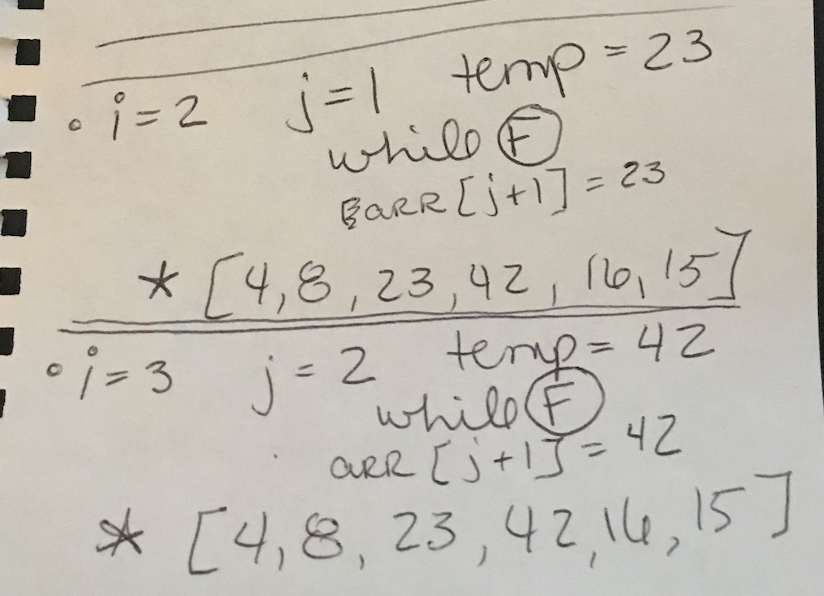 • i = 2 j = 1 temp = 23
while F
arr [j+1] = 23
* [4, 8, 23, 42, 16, 15]
• i = 3 j = 2 temp = 42
while F
arr [j+1] = 42
* [4, 8, 23, 42, 16, 15]